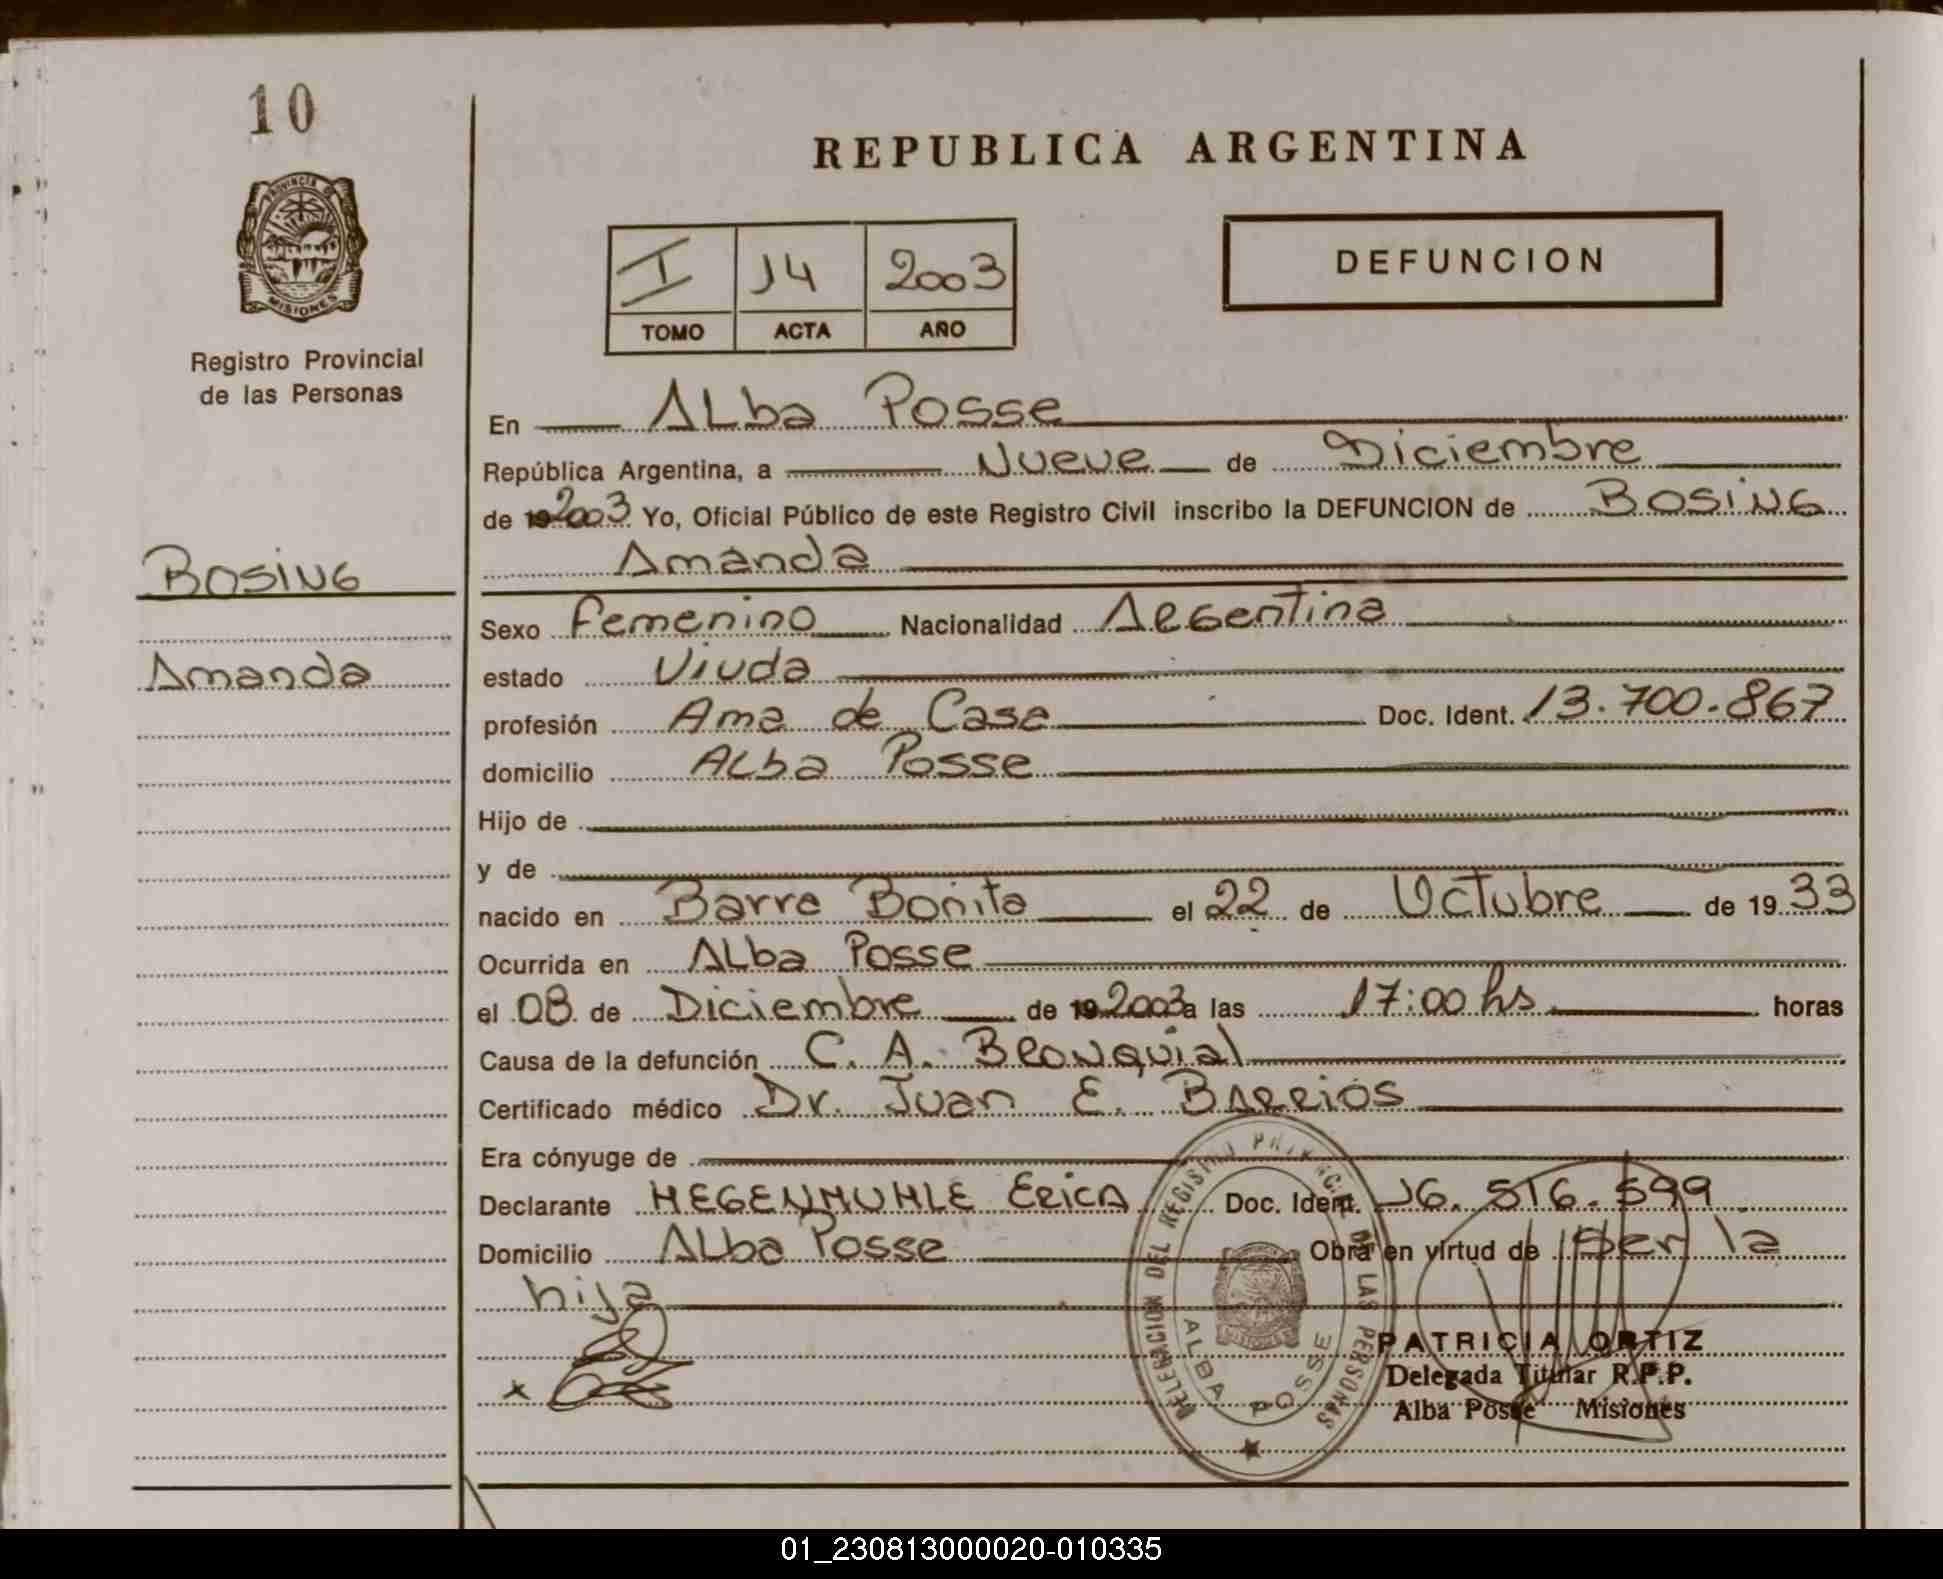 10
REPUBLICA ARGENTINA
PROVINCIA DE
MISIONES
Registro Provincial
de las Personas
I 14 2003
TOMO ACTA AÑO
DEFUNCION
En Alba Posse
República Argentina, a Nueve de Diciembre
de 19 2003 Yo, Oficial Público de este Registro Civil inscribo la DEFUNCION de BOSING
Amanda
BOSING
Amanda
Sexo Femenino Nacionalidad Argentina
estado Viuda
profesión Ama de Casa Doc. Ident. 13.700.867
domicilio Alba Posse
Hijo de
y de
nacido en Barra Bonita el 22 de Octubre de 19 33
Ocurrida en Alba Posse
el 08 de Diciembre de 19 2003 a las 17:00 hs horas
Causa de la defunción C. A. Bronquial
Certificado médico Dr. Juan E. Barrios
Era cónyuge de
Declarante HEGENMUHLE Erica Doc. Ident. 16.516.599
Domicilio Alba Posse Obra en virtud de ser la
hija
x
DELEGACION DEL REGISTRO PROVINCIAL DE LAS PERSONAS
ALBA POSSE
PATRICIA ORTIZ
Delegada Titular R.P.P.
Alba Posse Misiones
01_230813000020-010335